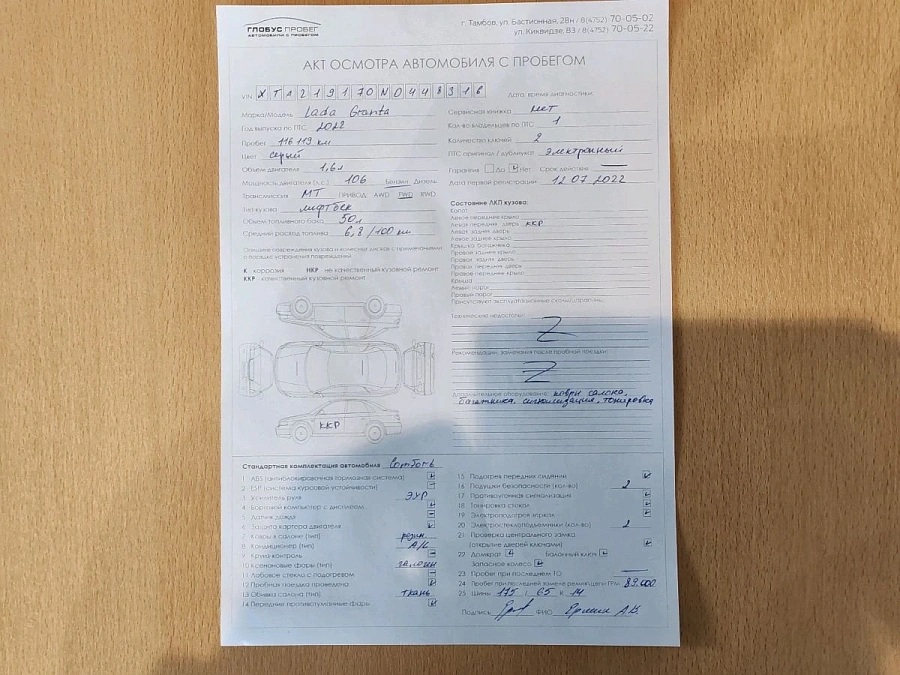 ГЛОБУС ПРОБЕГ
АВТОМОБИЛИ С ПРОБЕГОМ
г. Тамбов, ул. Бастионная, 28н / 8(4752) 70-05-02
ул. Киквидзе, 83 / 8(4752) 70-05-22
АКТ ОСМОТРА АВТОМОБИЛЯ С ПРОБЕГОМ
VIN XTA219170N0448316
Дата, время диагностики:
Марка/Модель Lada Granta
Год выпуска по ПТС 2022
Пробег 116 119 км
Цвет серый
Объем двигателя 1,6л
Мощность двигателя (л.с.) 106 Бензин Дизель
Трансмиссия МТ ПРИВОД: AWD FWD RWD
Тип кузова лифтбек
Объем топливного бака 50л
Средний расход топлива 6,8/100 км
Сервисная книжка нет
Кол-во владельцев по ПТС 1
Количество ключей 2
ПТС оригинал / дубликат электронный
Гарантия Да Нет Срок действия
Дата первой регистрации 12 07 2022
Опишите повреждения кузова и колесных дисков с примечаниями
о порядке устранения повреждений
К коррозия НКР не качественный кузовной ремонт
ККР качественный кузовной ремонт
ККР
Состояние ЛКП кузова:
Капот
Левое переднее крыло
Левая передняя дверь ККР
Левая задняя дверь
Левое заднее крыло
Крышка багажника
Правое заднее крыло
Правая задняя дверь
Правая передняя дверь
Правое переднее крыло
Крыша
Левый порог
Правый порог
Присутствуют эксплуатационные сколы, царапины
Технические недостатки:
Z
Рекомендации, замечания после пробной поездки:
Z
Дополнительное оборудование: ковры салона,
багажника, сигнализация, тонировка
Стандартная комплектация автомобиля Comfort
1 ABS (антиблокировочная тормозная система)
2 ESP (система курсовой устойчивости)
3 Усилитель руля ЭУР
4 Бортовой компьютер с дисплеем
5 Датчик дождя
6 Защита картера двигателя
7 Ковры в салоне (тип) резин
8 Кондиционер (тип) A/C
9 Круиз контроль
10 Ксеноновые фары (тип) галоген
11 Лобовое стекло с подогревом
12 Пробная поездка проведена
13 Обивка салона (тип) ткань
14 Передние противотуманные фары
15 Подогрев передних сидений
16 Подушки безопасности (кол-во) 2
17 Противоугонная сигнализация
18 Тонировка стекол
19 Электроподогрев зеркал
20 Электростеклоподъемники (кол-во) 2
21 Проверка центрального замка
(открытие дверей ключами)
22 Домкрат Балонный ключ
Запасное колесо
23 Пробег при последнем ТО:
24 Пробег при последней замене ремня/цепи ГРМ 89.000
25 Шины 175 / 65 R 14
Подпись ФИО